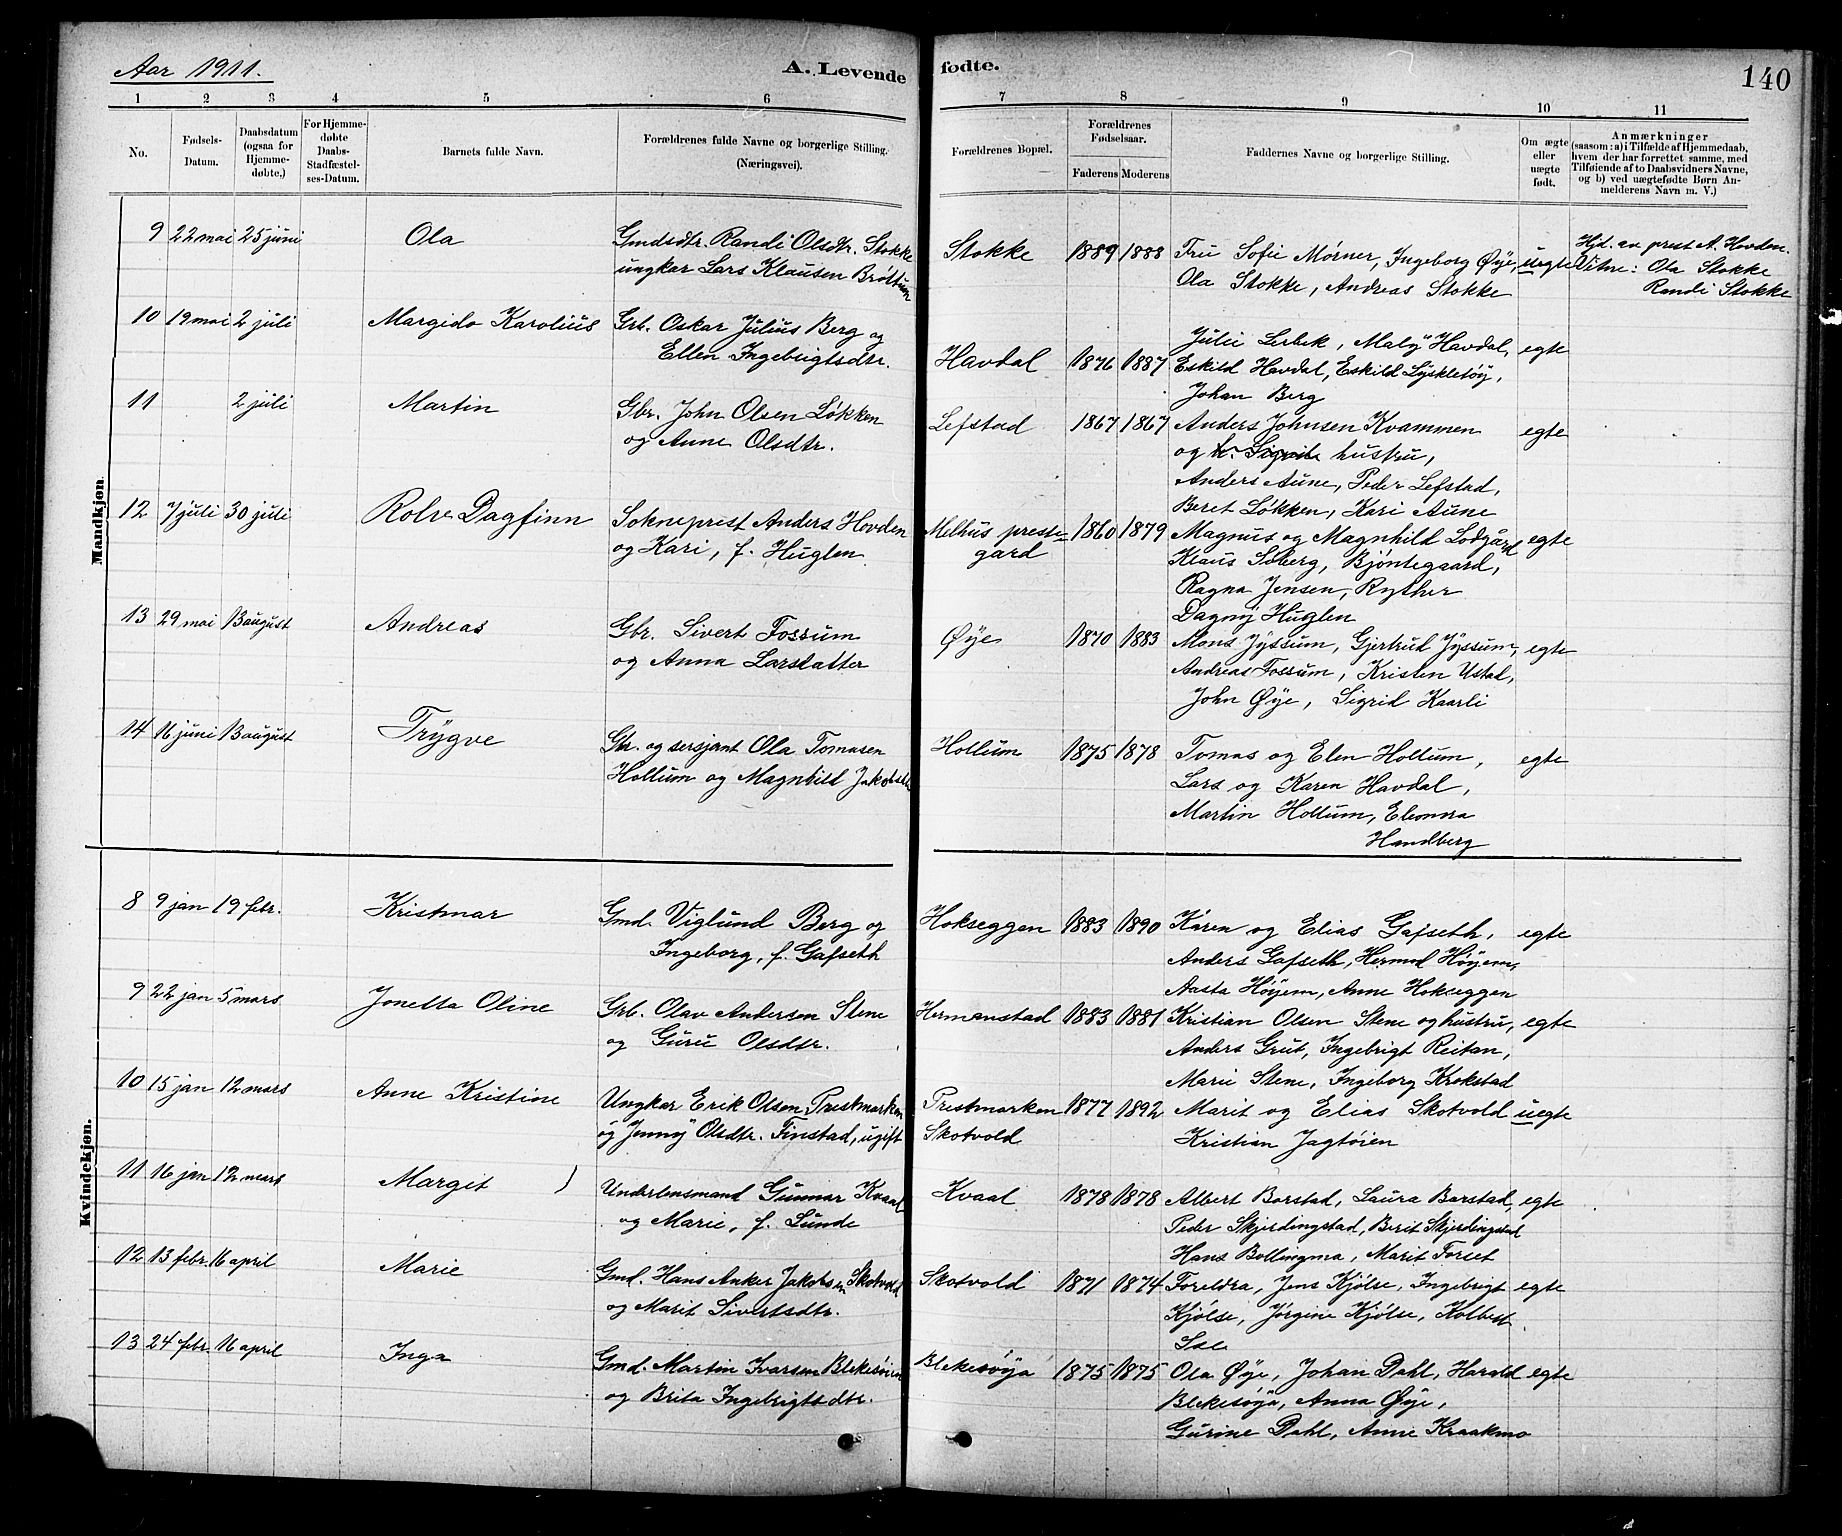 Aar 1911.
A. Levende fødte.
140
1 2 3 4 5 6 7 8 9 10 11
No.
Fødsels-
Datum.
Daabsdatum
(ogsaa for
Hjemme-
døbte,)
For Hjemme-
døbte
Daabs-
Stadfæstel-
ses-Datum.
Barnets fulde Navn.
Forældrenes fulde Navne og borgerlige Stilling.
(Næringsvei).
Forældrenes Bopæl.
Forældrenes
Fødselsaar.
Faderens Moderens
Faddernes Navne og borgerlige Stilling.
Om ægte
eller
uægte
født.
Anmærkninger
(saasom: a) i Tilfælde af Hjemmedaab,
hvem der har forrettet samme, med
Tilføiende af to Daabsvidners Navne,
og b) ved uægtefødte Børn An-
melderens Navn m. V.)
Mandkjøn.
9 22 mai 25 juni Ola Gmdsdtr. Randi Olsdtr. Stokke Stokke 1889 1888 Fru Sofie Mørner, Ingeborg Øye, uegte Hjd. av prest A. Hovden.
ungkar Lars Klausen Brøttum Ola Stokke, Andreas Stokke Vitne: Ola Stokke
Randi Stokke
10 19 mai 2 juli Margido Karolius Grb. Oskar Julius Berg og Havdal 1876 1887 Julie Lerbek, Maly Havdal, egte
Ellen Ingebrigtsdtr. Eskild Havdal, Eskild Lyskletøy,
Johan Berg
11 2 juli Martin Gbr. John Olsen Løkken Lefstad 1867 1867 Anders Johnsen Kvammen egte
og Anne Olsdtr. og h. Sigrid hustru,
Anders Aune, Peder Lefstad,
Beret Løkken, Kari Aune
12 7 juli 30 juli Rolv Dagfinn Sokneprest Anders Hovden Melhus preste- 1860 1879 Magnus og Magnhild Lodgård egte
og Kari, f. Huglen. gard Klaus Søberg, Bjøntegaard,
Ragna Jensen, Ryther
Dagny Huglen
13 29 mai 13 august Andreas Gbr. Sivert Fossum Øye 1870 1883 Mons Jyssum, Gjertrud Jyssum, egte
og Anna Larsdatter Andreas Fossum, Kristen Ustad,
John Øye, Sigrid Kaarli
14 16 juni 13 august Trygve Gbr. og sersjant Ola Tomasen Hollum 1875 1878 Tomas og Elen Hollum, egte
Hollum og Magnhild Jakobsen Lars og Karen Havdal,
Martin Hollum, Eleonora
Handberg
Kvindekjøn.
8 9 jan 19 febr. Kristmar Gmd. Viglund Berg og Hokseggen 1883 1890 Karen og Elias Gafseth, egte
Ingeborg, f. Gafseth Anders Gafseth, Hermod Høyem,
Aasta Høyem, Anne Hokseggen
9 22 jan 5 mars Jonetta Oline Grb. Olav Andersen Stene Hermanstad 1883 1881 Kristian Olsen Stene og hustru, egte
og Guru Olsdtr. Anders Grut, Ingebrigt Reitan,
Marie Stene, Ingeborg Krokstad
10 15 jan 12 mars Anne Kristine Ungkar Erik Olsen Prestmarken Prestmarken 1877 1892 Marit og Elias Skotvold uegte
og Jenny Olsdtr. Finstad, ugift Skotvold Kristian Jagtøien
11 16 jan 12 mars Margit Underlensmand Gunnar Kvaal Kvaal 1878 1878 Albert Borstad, Laura Borstad, egte
og Marie, f. Lunde Peder Skjerdingstad, Berit Skjerdingstad
Hans Bollingmo, Marit Forset
12 13 febr. 16 april Marie Gmd. Hans Anker Jakobsen Skotvold Skotvold 1871 1874 Foreldra, Jens Kjølse, Ingebrigt egte
og Marit Sivertsdtr. Kjølse, Jørgine Kjølse, Kolbein

13 24 febr. 16 april Inga Gmd. Martin Ivarsen Blekesøien Blekesøya 1875 1875 Ola Øye, Johan Dahl, Harald egte
og Brita Ingebrigtsdtr. Blekesøya, Anna Øye,
Gurine Dahl, Anne Kraakmo